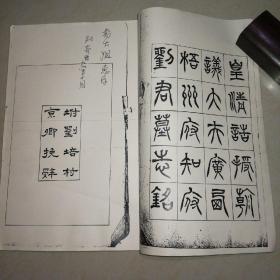 皇清誥授朝
議大夫廣西
梧州府知府
劉君墓志銘
惠存
坿劉培村
京卿挽辭